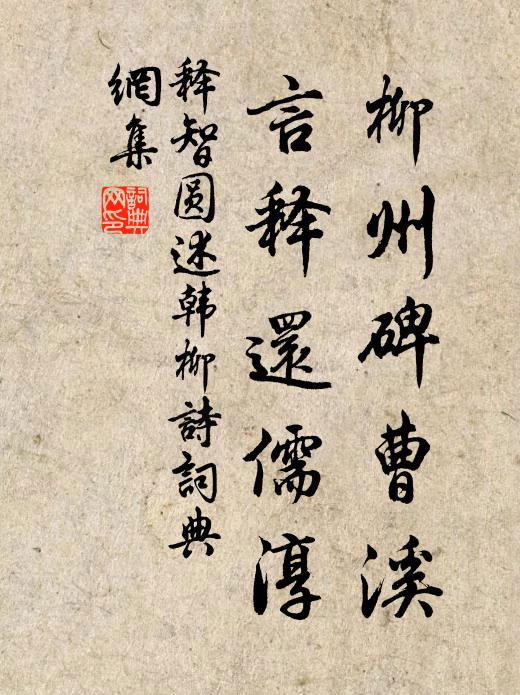 柳州碑曹溪
言释還儒淳
释智圆述韩柳詩詞典
網集
詞典网印